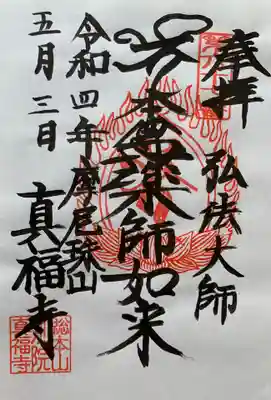 奉拝
弘法大師
本尊薬師如来
令和四年摩尾珠山
真福寺
五月三日
総本山
真福寺